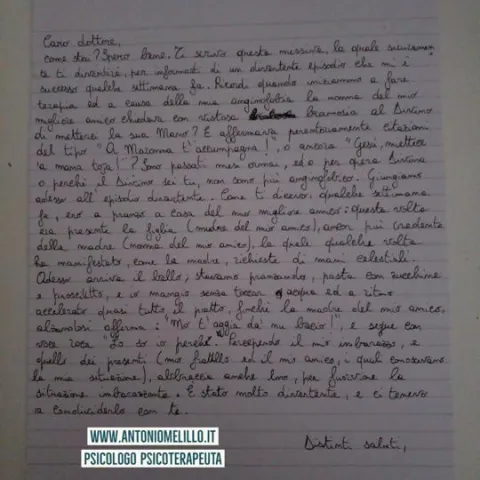 Caro dottore,
come stai? Spero bene. Ti scrivo questa missiva, la quale sicuramen
te ti divertirà, per informarti di un divertente episodio che mi è
successo qualche settimana fa. Ricordi quando iniziammo a fare
terapia ed a causa della mia anginofobia la nonna del mio
migliore amico chiedeva con vistosa bramosia al Divino
di mettere la sua Mano? E affermava perentoriamente citazioni
del tipo " A Maronna t'accumpagna!", o ancora "Gesù, miettice
'a mana toja!"? Sono passati mesi ormai, ed o per opera Divina
o perché il Divino sei tu, non sono più anginofobico. Giungiamo
adesso all'episodio divertente. Come ti dicevo, qualche settimana
fa, ero a pranzo a casa del mio migliore amico; questa volta
era presente la figlia (madre del mio amico), ancor più credente
della madre (nonna del mio amico), la quale qualche volta
ha manifestato, come la madre, richieste di mani celestiali.
Adesso arriva il bello; stavamo pranzando, pasta con zucchine
e prosciutto, e io mangio senza toccar acqua ed a ritmo
accelerato quasi tutto il piatto, finché la madre del mio amico,
alzandosi afferma: "Mo t'aggia da' nu bacio!", e segue con
voce roca "Lo so io perché". Percependo il mio imbarazzo, e
quello dei presenti (mio fratello ed il mio amico, i quali conoscevano
la mia situazione), abbraccia anche loro, per
situazione imbarazzante. È stato molto divertente, e ci tenevo
a condividerlo con te.
Distinti saluti,
WWW.ANTONIOMELILLO.IT
PSICOLOGO PSICOTERAPEUTA